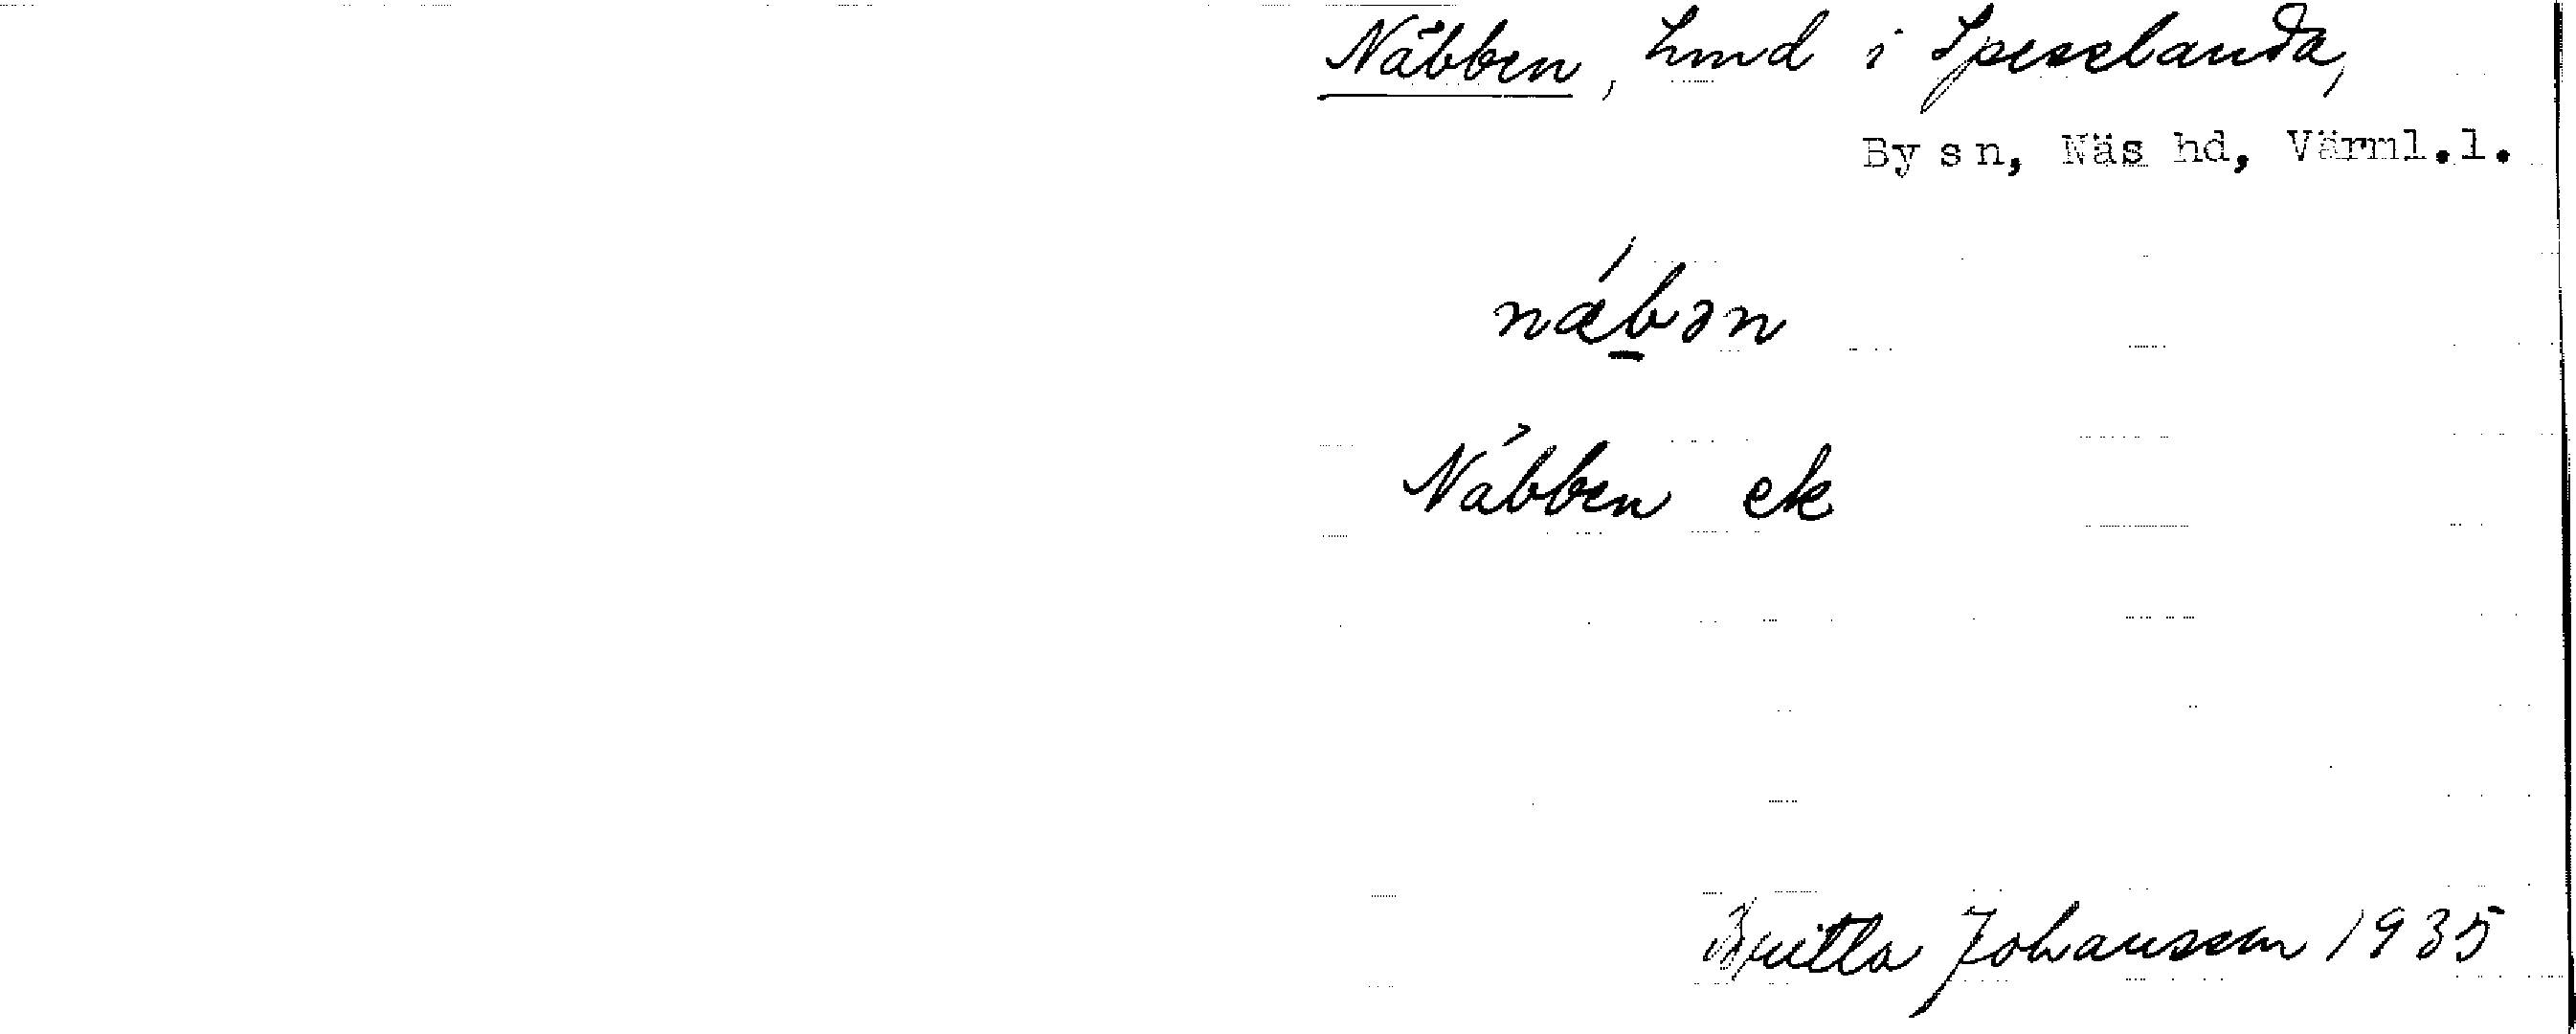 Näbben, hmd i Speselanda,
By sn, Näs hd, Värml.l.
nǽbən
Näbben ek
Britta Johansson 1935